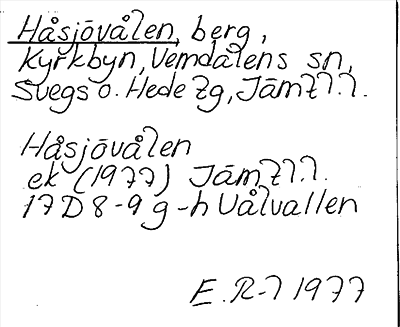 Håsjövålen, berg,
Kyrkbyn, Vemdalens sn,
Svegs o. Hede tg, Jämtl.l.
Håsjövålen
ek (1977) Jämtl.l.
17D 8-9 g-h Vålvallen
E.R-l 1977